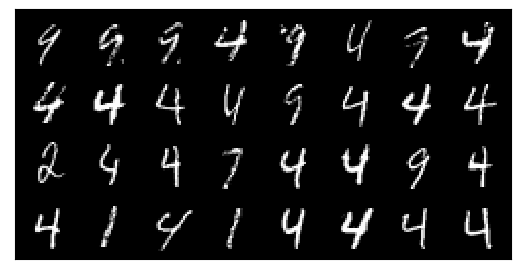 9 9 9 4 9 4 9 4
4 4 4 4 9 4 4 4
2 4 4 7 4 4 9 4
4 1 4 1 4 4 4 4